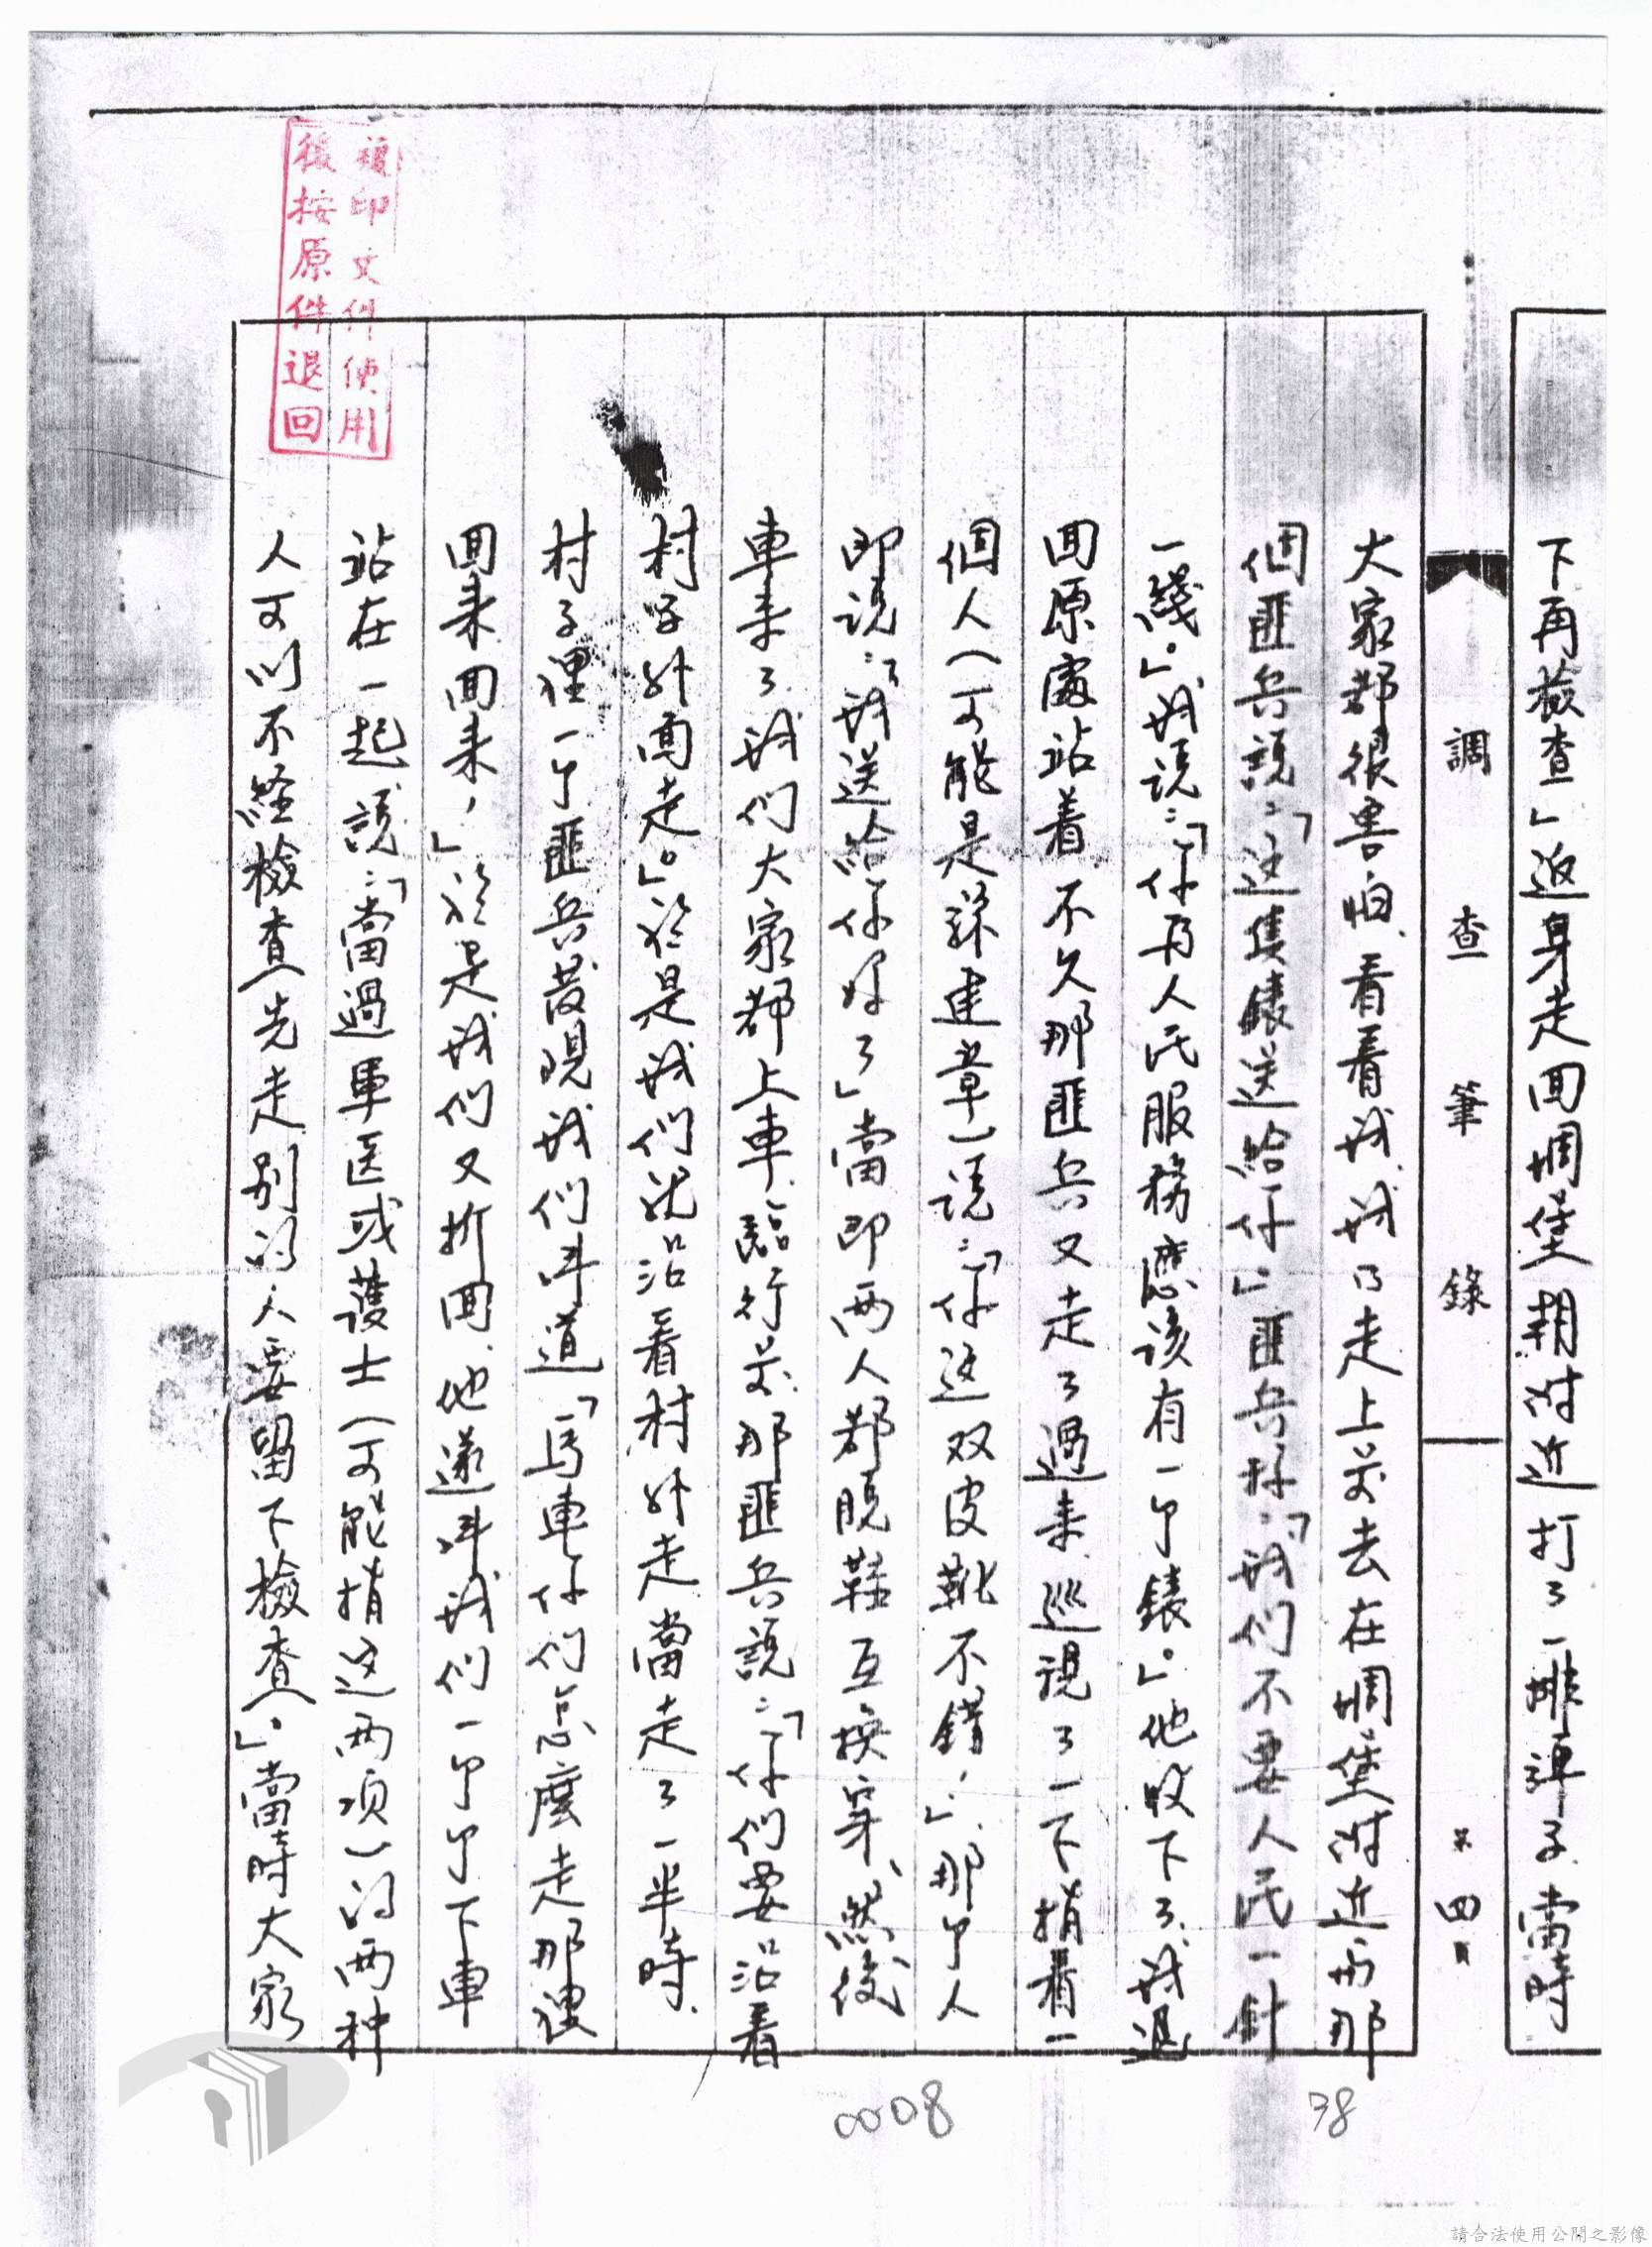 下再檢查」返身走回堋堡、附近打了一排彈子、當時
調查筆錄
第四頁
大家都很害怕、看看我、我乃走上前去在堋堡附近向那
個匪兵說：「这隻錶送給你」。匪兵称：「我们不要人民一針
一綫。」我說：「你为人民服務應该有一个錶。」他收下了、我退
回原處站着、不久那匪兵又走了過来、巡視了一下指着一
個人（可能是孫建章）說：「你这双皮靴不錯，」那个人
即说：「我送給你好了」當即两人都脫鞋互換穿、然後
車来了、我们大家都上車、臨行前、那匪兵說：「你们要沿着
村子外面走。」於是我们就沿着村外走當走了一半時、
村子裡一个匪兵發現我们叫道「馬車你们怎麼走那裡
回来回来，」於是我们又折回、他遂叫我们一个个下車
站在一起、說：「當過軍医或護士（可能指这两項）的两种
人可以不經檢查先走、别的人要留下檢查」。當時大家
複印文件使用
後按原件退回
0008
38
請合法使用公開之影像